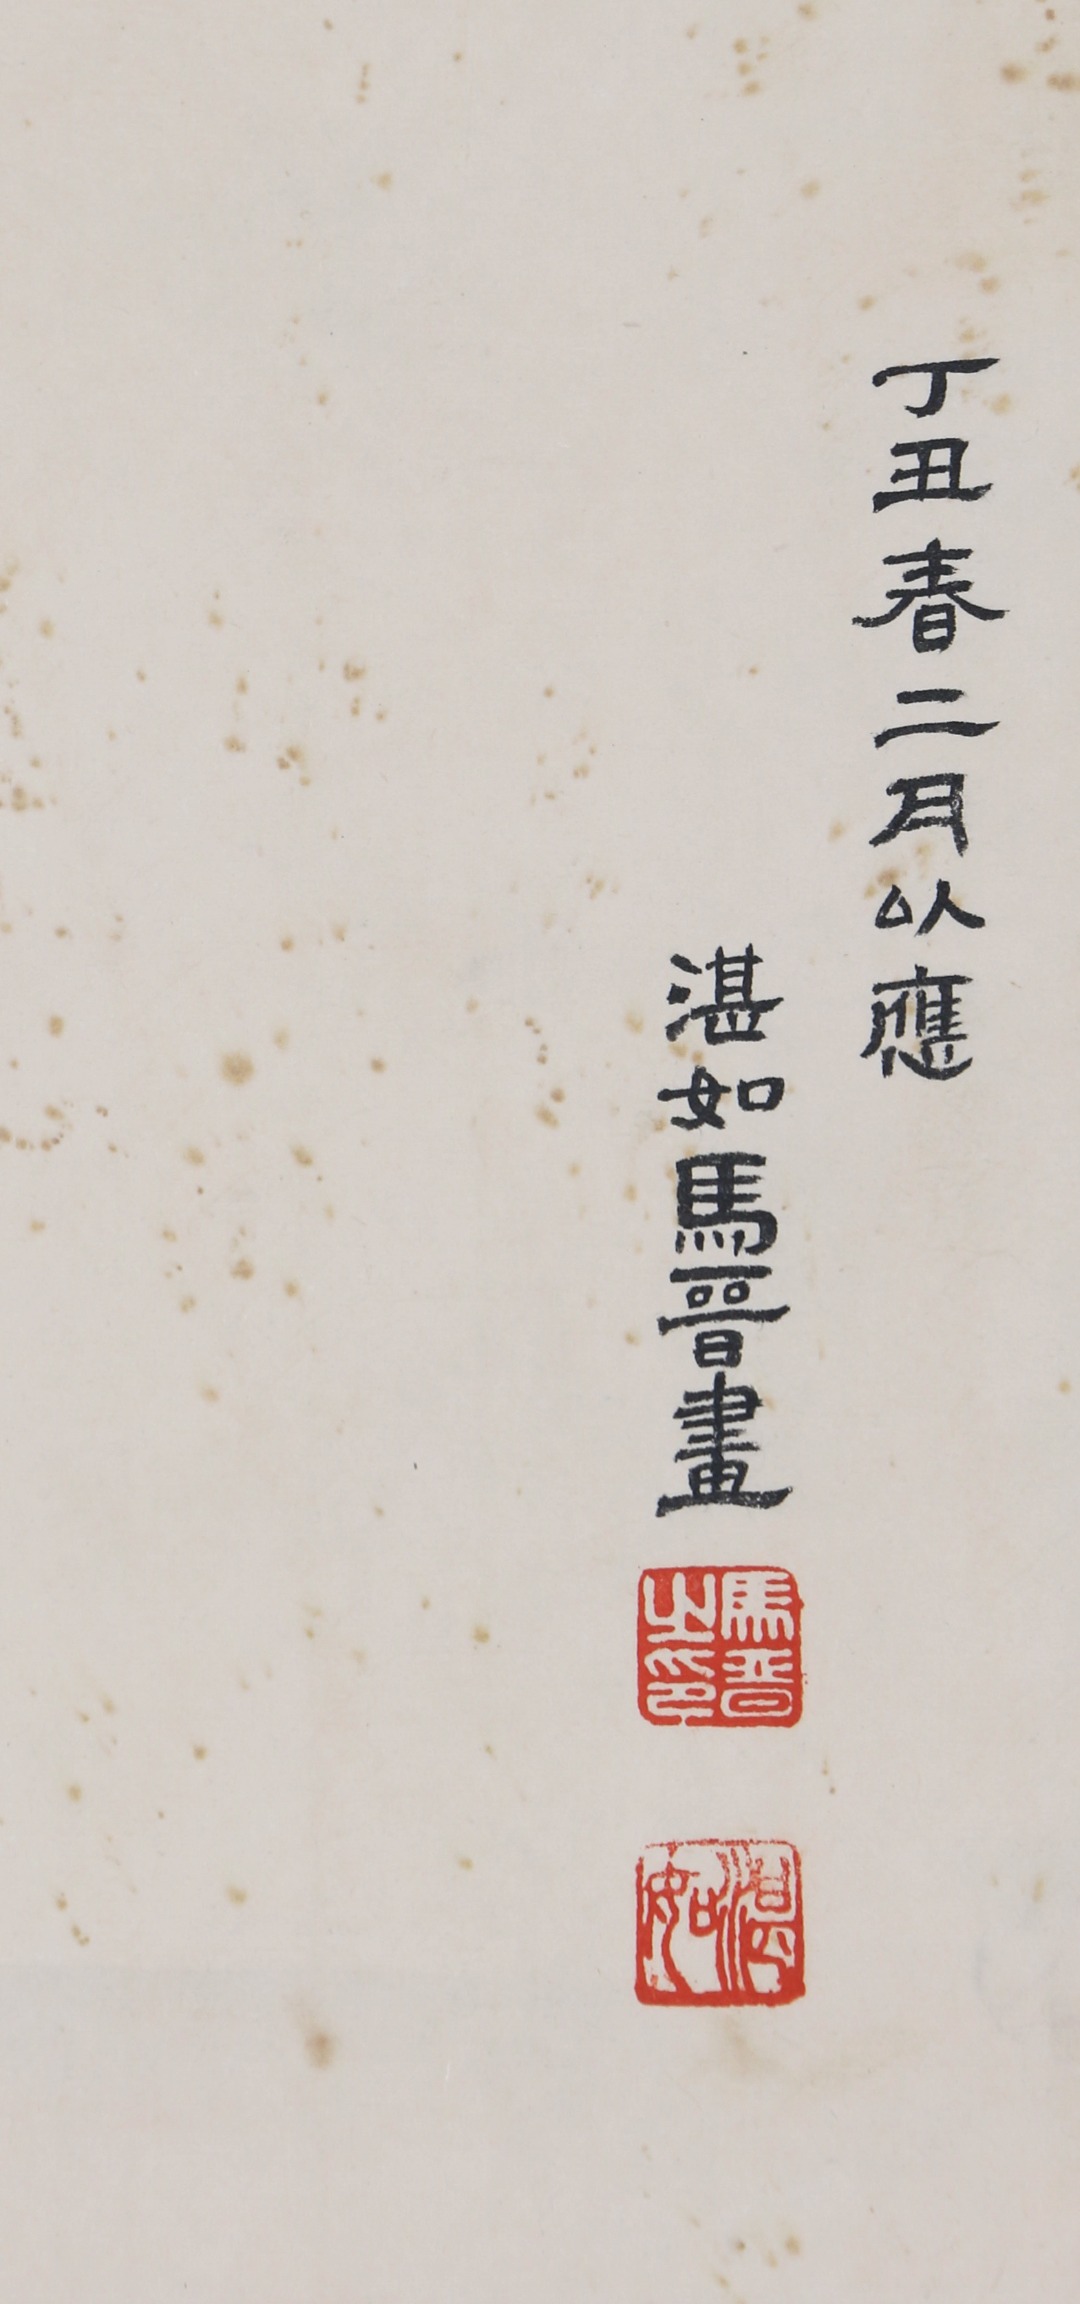 丁丑春二月以應
湛如馬晉畫
馬晉之印
湛如